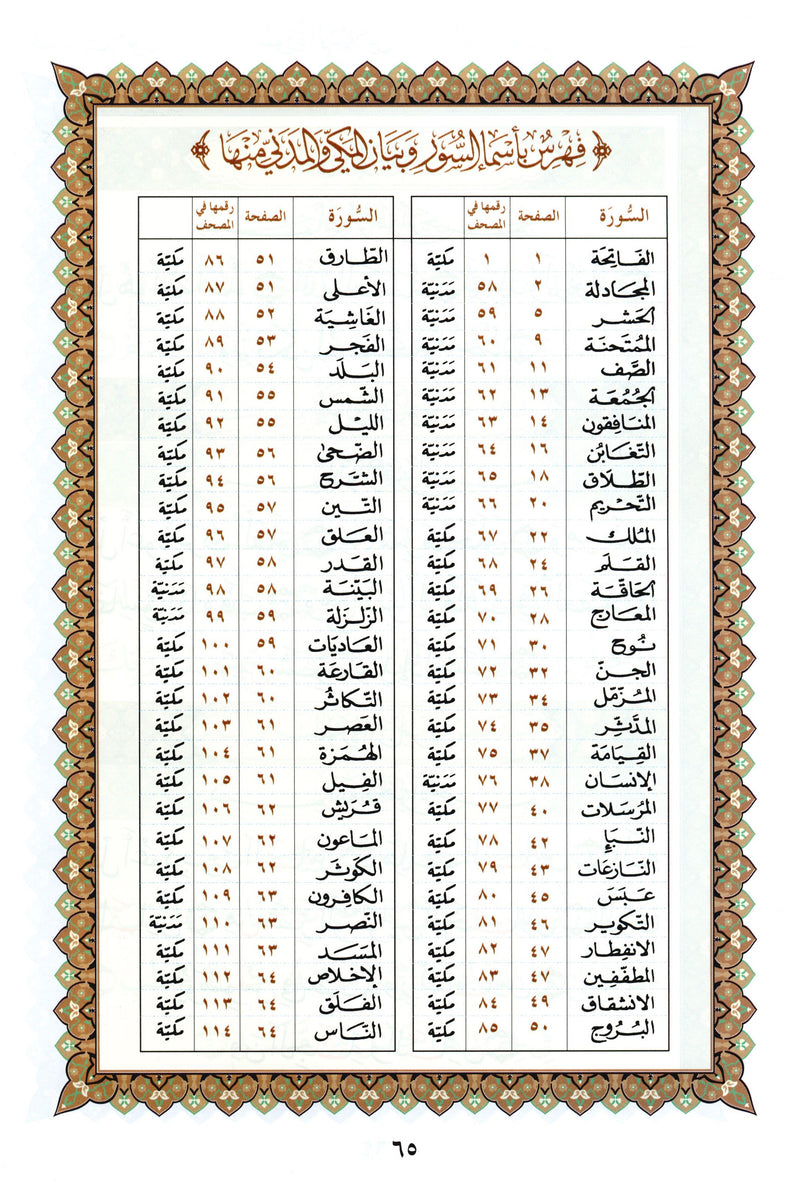 فِهْرِسُ بِأَسْمَاءِ السُّوَرِ وَبَيَانِ المَكِّيِّ وَالمَدَنِيِّ مِنْهَا
السُّورَة الصفحة رقمها في المصحف
الفَاتِحَة ١ ١ مكيّة
المجَادلة ٢ ٥٨ مَدَنيّة
الحَشر ٥ ٥٩ مَدَنيّة
الممُتَحنَة ٩ ٦٠ مَدَنيّة
الصَّف ١١ ٦١ مَدَنيّة
الجُمُعَة ١٣ ٦٢ مَدَنيّة
المنَافقون ١٤ ٦٣ مَدَنيّة
التّغَابُن ١٦ ٦٤ مَدَنيّة
الطّلَاق ١٨ ٦٥ مَدَنيّة
التّحْريم ٢٠ ٦٦ مَدَنيّة
المُلك ٢٢ ٦٧ مكيّة
القَلَم ٢٤ ٦٨ مكيّة
الحَاقّة ٢٦ ٦٩ مكيّة
المعَارج ٢٨ ٧٠ مكيّة
نُوح ٣٠ ٧١ مكيّة
الجنّ ٣٢ ٧٢ مكيّة
المُزمّل ٣٤ ٧٣ مكيّة
المدَّثر ٣٥ ٧٤ مكيّة
القِيَامَة ٣٧ ٧٥ مكيّة
الإنسَان ٣٨ ٧٦ مَدَنيّة
المُرسَلات ٤٠ ٧٧ مكيّة
النّبَإ ٤٢ ٧٨ مكيّة
النّازعَات ٤٣ ٧٩ مكيّة
عَبَسَ ٤٥ ٨٠ مكيّة
التّكوير ٤٦ ٨١ مكيّة
الانفِطار ٤٧ ٨٢ مكيّة
المطفّفِين ٤٧ ٨٣ مكيّة
الانشقاق ٤٩ ٨٤ مكيّة
البُرُوج ٥٠ ٨٥ مكيّة
السُّورَة الصفحة رقمها في المصحف
الطّارق ٥١ ٨٦ مكيّة
الأعلى ٥١ ٨٧ مكيّة
الغَاشِيَة ٥٢ ٨٨ مكيّة
الفَجر ٥٣ ٨٩ مكيّة
البَلَد ٥٤ ٩٠ مكيّة
الشّمس ٥٥ ٩١ مكيّة
الليْل ٥٥ ٩٢ مكيّة
الضّحىٰ ٥٦ ٩٣ مكيّة
الشّرح ٥٦ ٩٤ مكيّة
التّين ٥٧ ٩٥ مكيّة
العَلق ٥٧ ٩٦ مكيّة
القَدر ٥٨ ٩٧ مكيّة
البَيّنَة ٥٨ ٩٨ مَدَنيّة
الزّلزَلة ٥٩ ٩٩ مَدَنيّة
العَاديَات ٥٩ ١٠٠ مكيّة
القَارعَة ٦٠ ١٠١ مكيّة
التّكاثُر ٦٠ ١٠٢ مكيّة
العَصر ٦١ ١٠٣ مكيّة
الهُمَزة ٦١ ١٠٤ مكيّة
الفِيل ٦١ ١٠٥ مكيّة
قُرَيش ٦٢ ١٠٦ مكيّة
الماعون ٦٢ ١٠٧ مكيّة
الكوثَر ٦٢ ١٠٨ مكيّة
الكافرون ٦٣ ١٠٩ مكيّة
النّصر ٦٣ ١١٠ مَدَنيّة
المسَد ٦٣ ١١١ مكيّة
الإخلاص ٦٤ ١١٢ مكيّة
الفَلَق ٦٤ ١١٣ مكيّة
النّاس ٦٤ ١١٤ مكيّة
٦٥